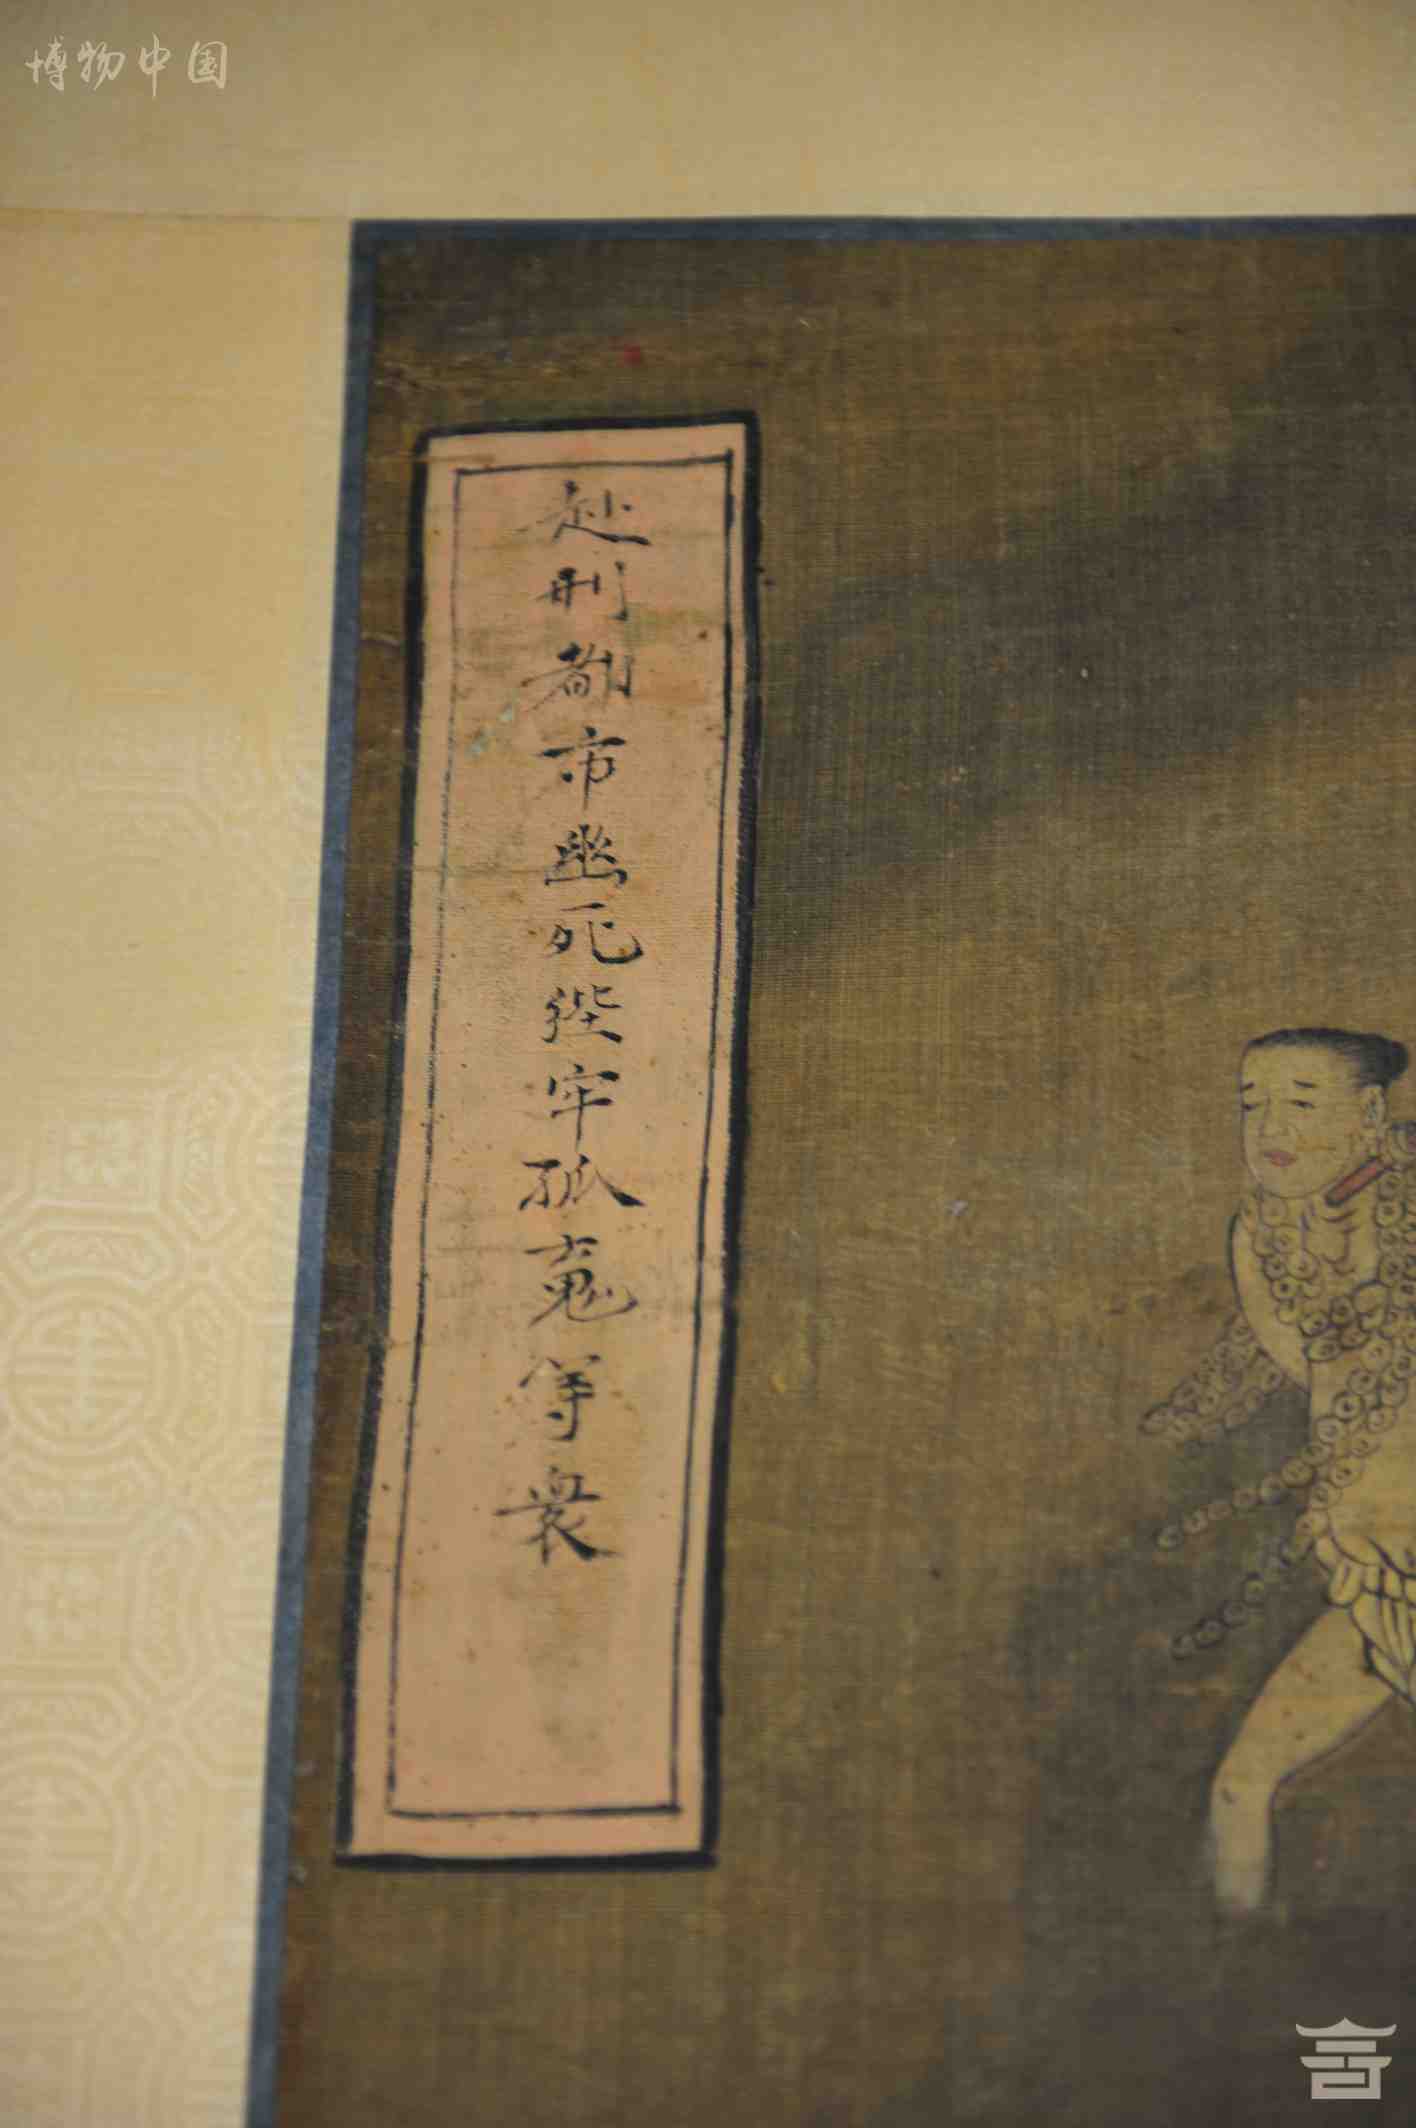 博物中国
赴刑都市幽死狴牢孤䰟等衆